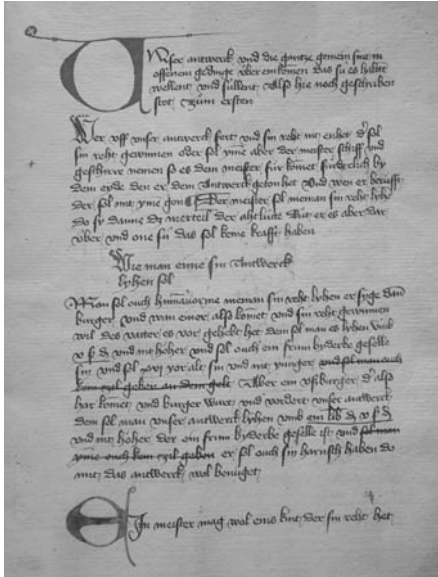 Unser antwerck und die gantze gemein sint in
offenem gedinge über ein komen das sü es halten
wellent und süllent Also hie noch geschriben
stot zum ersten
Wer uff unser antwerck fert und sin reht nit enhet d' sol
sin reht gewinnen oder sol yme aber der meister schiff und
geschirre nemen so es dem meister für kömet fürderlich by
dem eyde den er dem Antwerck geton het Und wen er berüfft
der sol mit yme gon Der meister sol nieman sin reht lyhe
do sy danne dz merteil der ahtlüte Dut er es aber dar
über und one sü das sol keine krafft haben
Wie man eime sin Antwerck
lyhen sol
Man sol ouch nieman sin reht lyhen er syge dan
burger und wan einer also kömet und sin reht gewinnen
wil des vatter es vor gehebt het dem sol man es lyhen umb
v ß d und nit höher und sol ouch ein frum byderbe geselle
sin und sol xvj jor alt sin und nit yünger und sol man ouch
kein zil geben an dem gelt Aber ein ussburger d' also
har kömet und burger wurt und vordert unser antwerck
dem sol man unser antwerck lyhen umb ein lib d v ß d
und nit höher der ein frum byderbe geselle ist und sol man
yme ouch kein zil geben er sol ouch sin harnsch haben do
mit das antwerck wol benüget
Ein meister mag wol eins kint der sin reht het